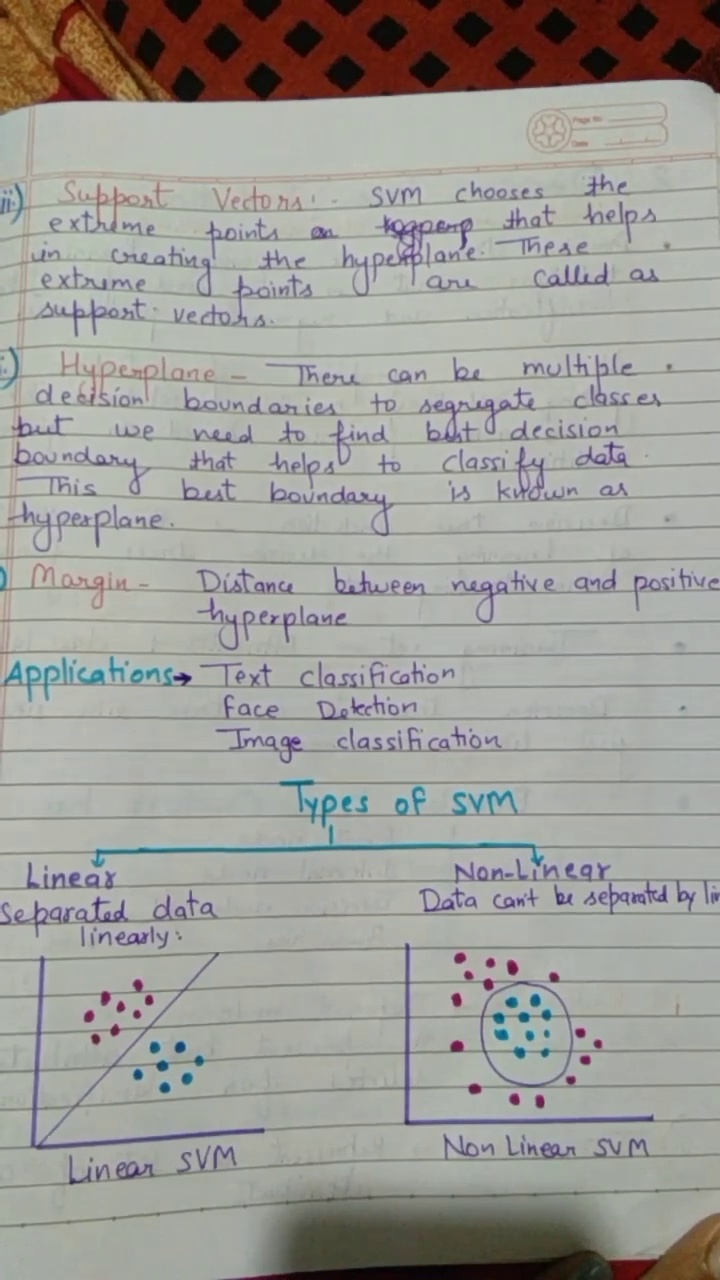 Page No.
Date
ii) Support Vectors:- SVM chooses the
extreme points that helps
in creating the hyperplane. These
extreme points are called as
support vectors.
Hyperplane - There can be multiple
decision boundaries to segregate classes
but we need to find best decision
boundary that helps to classify data.
This best boundary is known as
hyperplane.
Margin - Distance between negative and positive
hyperplane
Applications→ Text classification
Face Detection
Image classification
Types of SVM
Linear
Separated data
linearly:
Linear SVM
Non-Linear
Data can't be separated by
Non Linear SVM